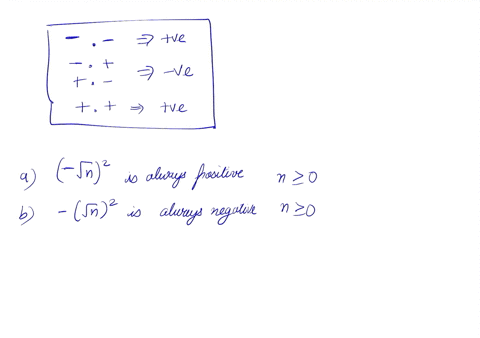 - . - ⇒ +ve
- . +
+ . - ⇒ -ve
+ . + ⇒ +ve
a) (-√n)² is always positive n ≥ 0
b) -(√n)² is always negative n ≥ 0